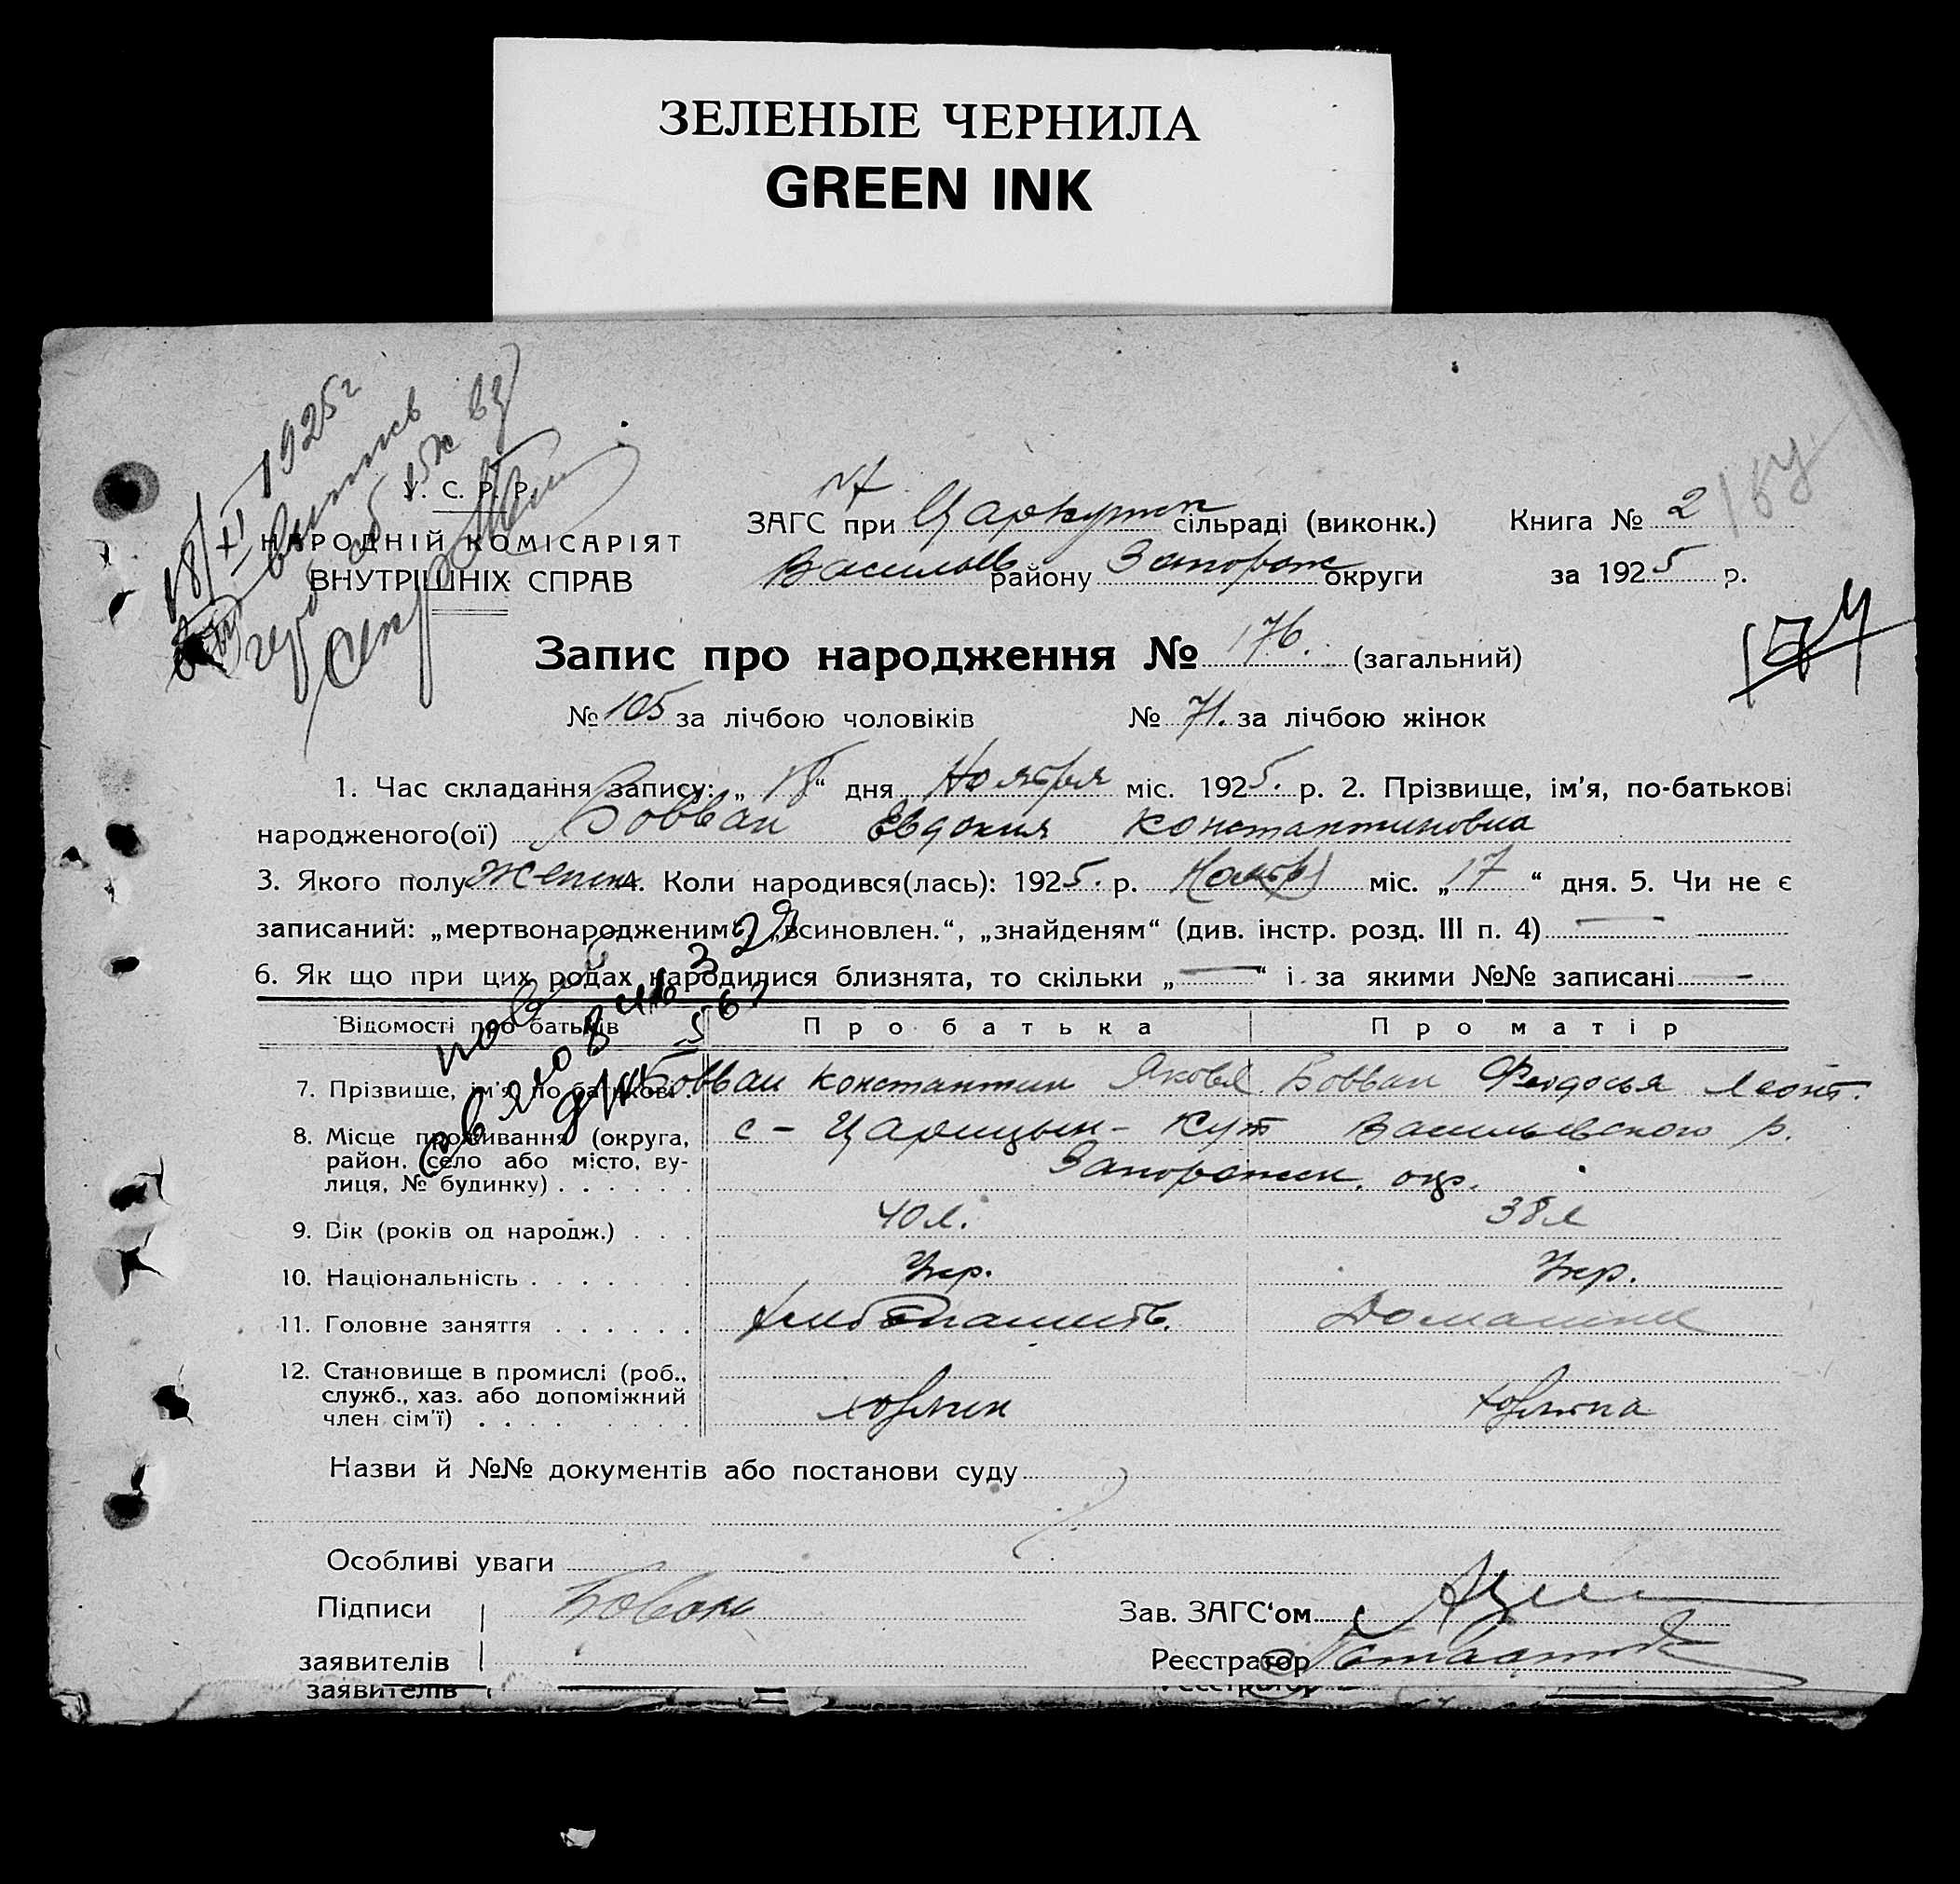 ЗЕЛЕНЫЕ ЧЕРНИЛА
GREEN INK
18/XI 1925 г
У. С. Р. Р.
НАРОДНІЙ КОМІСАРІЯТ
ВНУТРІШНІХ СПРАВ
ЗАГС при Царкутск сільраді (виконк.) Книга № 2
Васильев району Запорож округи за 1925 р.
Запис про народження № 176. (загальний)
№ 105 за лічбою чоловіків № 71. за лічбою жінок
1. Час складання запису: „ 18 “ дня Ноября міс. 1925. р. 2. Прізвище, ім’я, по-батькові
народженого(ої) Бовван Евдокия Константиновна
3. Якого полу женск 4. Коли народився(лась): 1925. р. Ноябр міс. „ 17 “ дня. 5. Чи не є
записаний: „мертвонародженим“, „всиновлен.“, „знайденям“ (див. інстр. розд. III п. 4) —
6. Як що при цих родах народилися близнята, то скільки „ — “ і за якими №№ записані —
Відомості про батьків Про батька Про матір
7. Прізвище, ім’я, по-батькові. Бовван Константин Яковл Бовван Феодосья Леонт.
8. Місце проживання (округа, с – Царицын – Кут Васильевского р.
район, село або місто, ву-
лиця, № будинку) . . . . . . Запорожск. окр.
9. Вік (років од народж.) . . . 40 л. 38 л
10. Національність . . . . . . . Укр. Укр.
11. Головне заняття . . . . . . Домашни
12. Становище в промислі (роб.,
служб., хаз. або допоміжний
член сім’ї) . . . . . . . . .
Назви й №№ документів або постанови суду
Особливі уваги
Підписи Бован Зав. ЗАГС‘ом
заявителів Реєстратор
заявителів